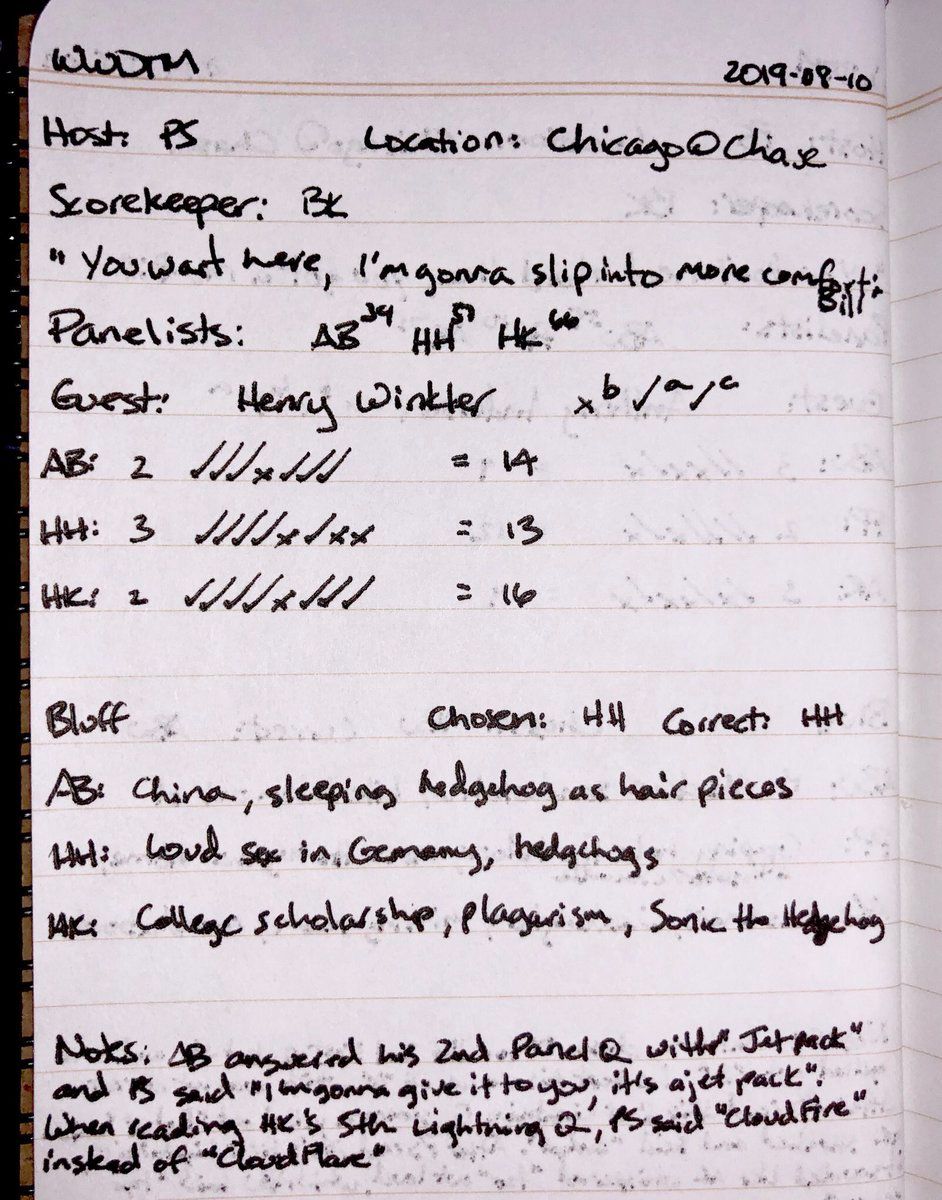 WWDTM 2019-08-10
Host: PS Location: Chicago@Chase
Scorekeeper: BK
"You wait here, I'm gonna slip into more comforti
Bill"
Panelists: AB39 HH51 HK66
Guest: Henry Winkler xb ✓a ✓c
AB: 2 ✓✓✓x✓✓✓ = 14
HH: 3 ✓✓✓✓x✓xx = 13
HK: 2 ✓✓✓✓x✓✓✓ = 16
Bluff Chosen: HH Correct: HH
AB: China, sleeping hedgehog as hair pieces
HH: Loud sex in Germany, hedgehogs
HK: College scholarship, plagarism, Sonic the Hedgehog
Notes: AB answered his 2nd Panel Q with "Jetpack"
and PS said "I'm gonna give it to you, it's a jet pack".
When reading HK's 5th Lightning Q, PS said "CloudFire"
instead of "CloudFlare"